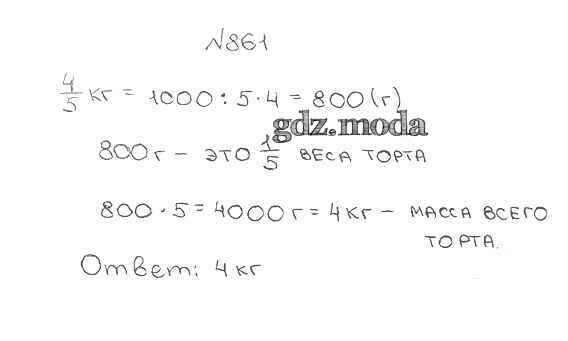 №861
4/5 кг = 1000 : 5 · 4 = 800 (г)
gdz.moda
800 г – это 1/5 веса торта
800 · 5 = 4000 г = 4 кг – масса всего
торта.
Ответ: 4 кг